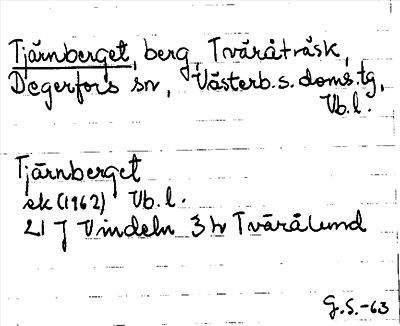 Tjärnberget, berg, Tväråträsk,
Degerfors sn, Västerb. s. doms. tg,
Vb. l.
Tjärnberget
ek (1962) Vb. l.
21 J Vindeln 3 h Tvärålund
G. S. -63